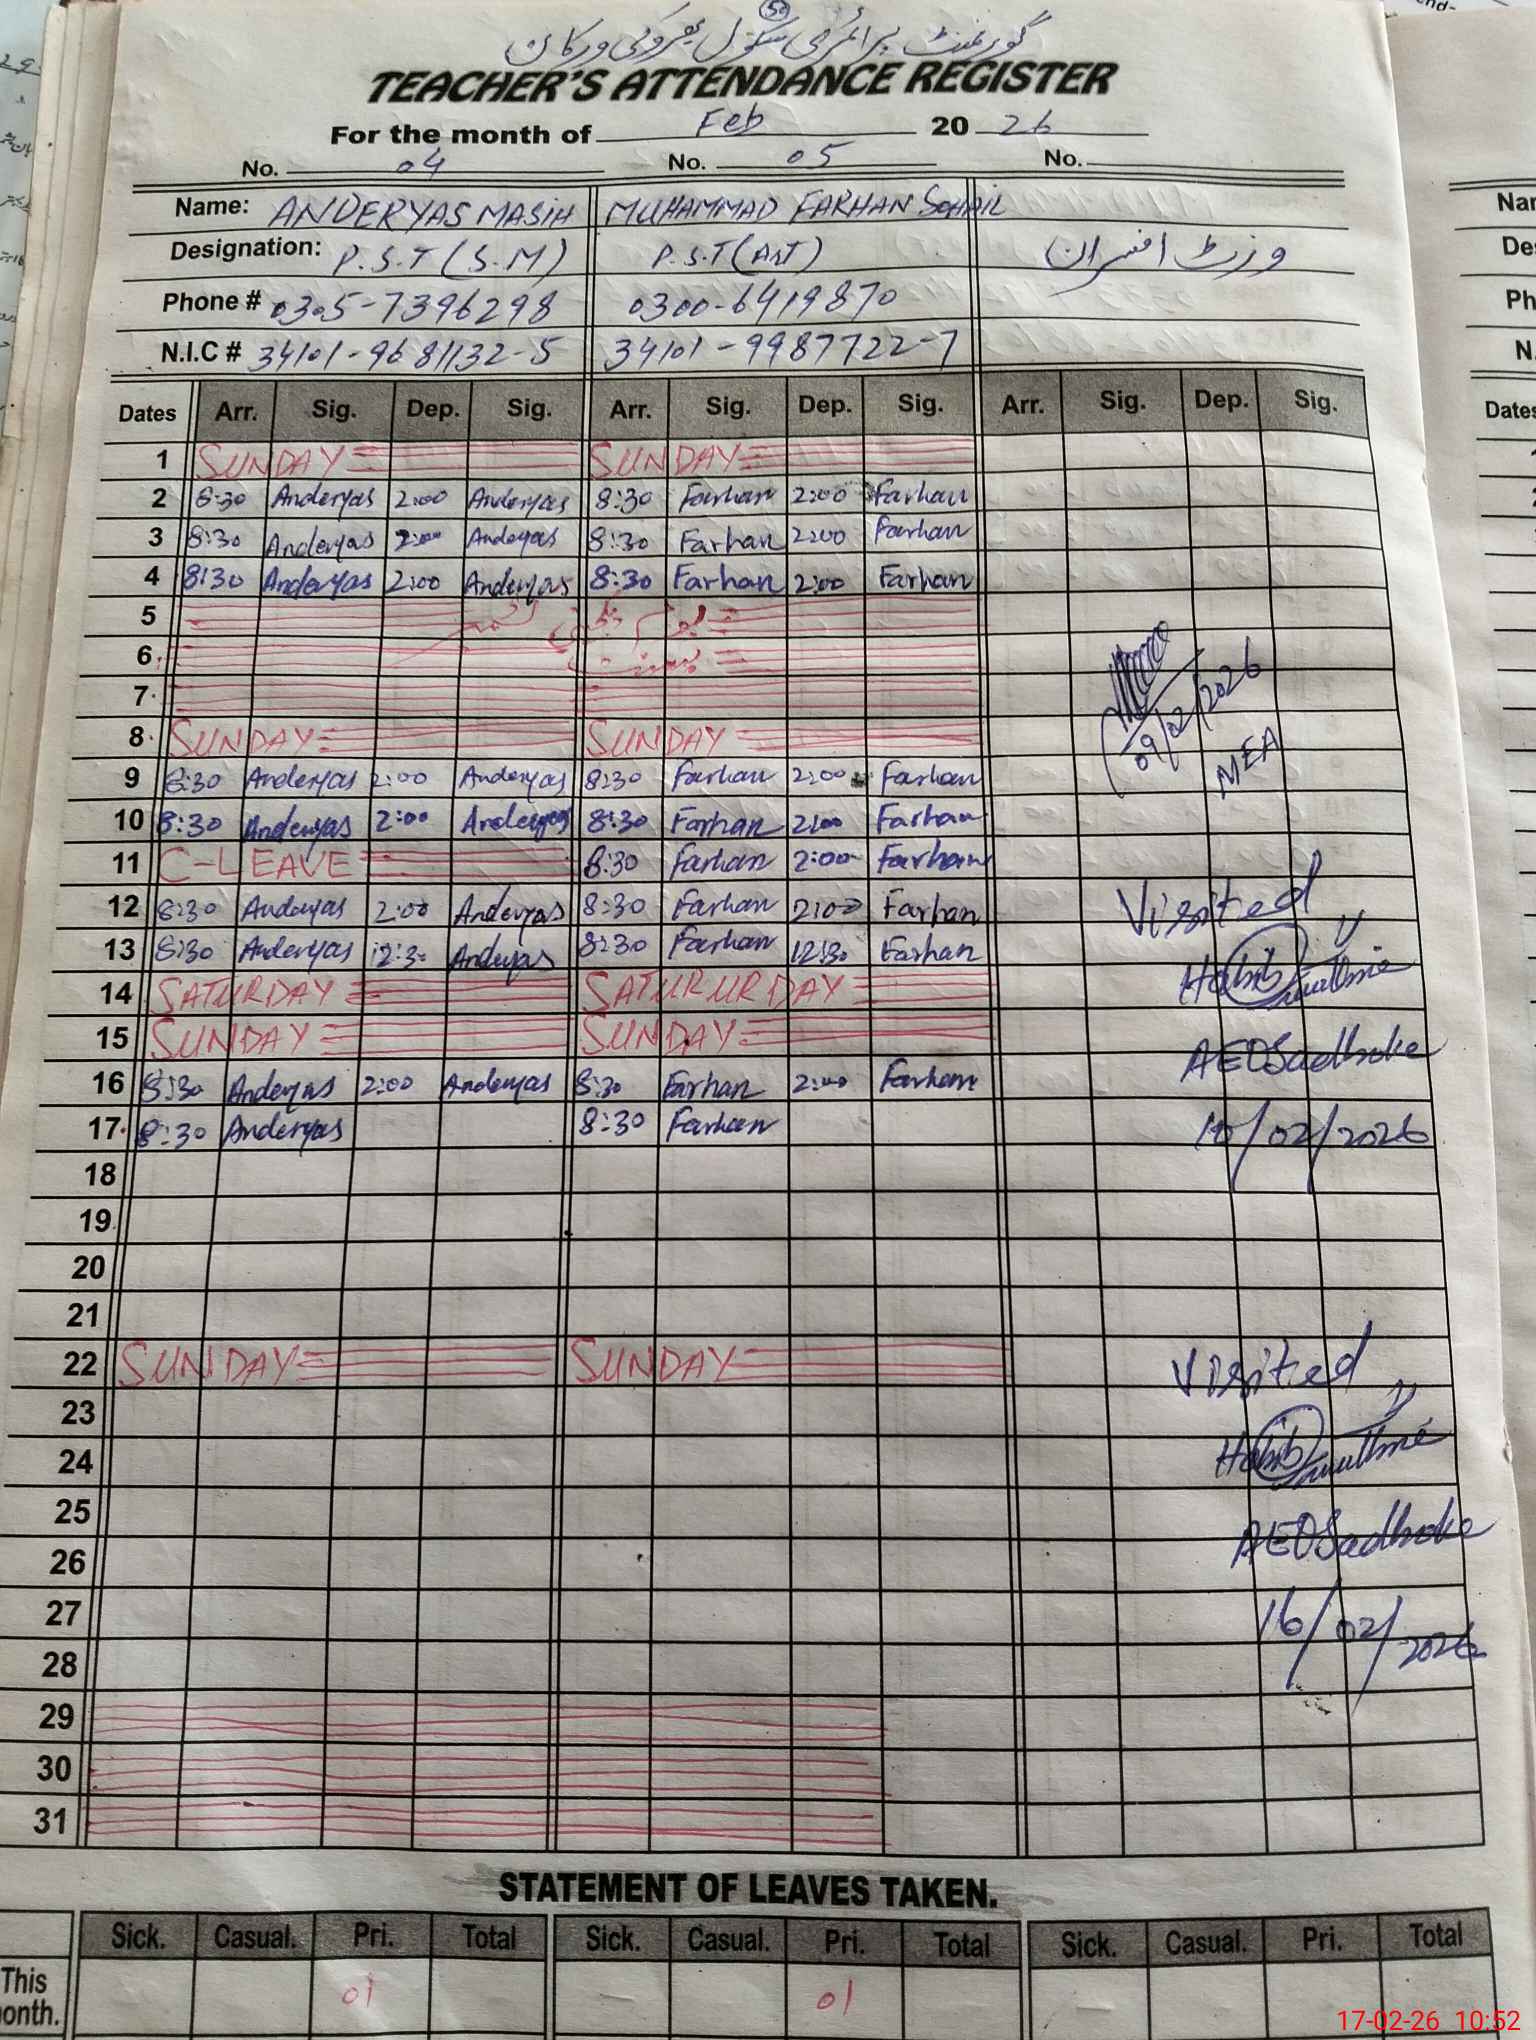 50
گورنمنٹ پرائمری سکول بھروکی ورکاں
TEACHER'S ATTENDANCE REGISTER
For the month of Feb 2026
No. 04 No. 05 No.
Name: ANDERYAS MASIH MUHAMMAD FARHAN SOHAIL
Designation: P.S.T (S.M) P.S.T (Art) وزٹ افسران
Phone # 0305-7396298 0300-6419870
N.I.C # 34101-9681132-5 34101-9987722-7
Dates Arr. Sig. Dep. Sig. Arr. Sig. Dep. Sig. Arr. Sig. Dep. Sig.
1 SUNDAY SUNDAY
2 8:30 Anderyas 2:00 Anderyas 8:30 Farhan 2:00 Farhan
3 8:30 Anderyas 2:00 Anderyas 8:30 Farhan 2:00 Farhan
4 8:30 Anderyas 2:00 Anderyas 8:30 Farhan 2:00 Farhan
5
6 بسنت
7
8 SUNDAY SUNDAY
09/02/2026
MEA
9 8:30 Anderyas 2:00 Anderyas 8:30 Farhan 2:00 Farhan
10 8:30 Anderyas 2:00 Anderyas 8:30 Farhan 2:00 Farhan
11 C-LEAVE 8:30 Farhan 2:00 Farhan
12 8:30 Anderyas 2:00 Anderyas 8:30 Farhan 2:00 Farhan Visited
13 8:30 Anderyas 12:30 Anderyas 8:30 Farhan 12:30 Farhan
14 SATURDAY SATURURDAY Habib
15 SUNDAY SUNDAY AEO Sadhoke
16 8:30 Anderyas 2:00 Anderyas 8:30 Farhan 2:00 Farhan
17 8:30 Anderyas 8:30 Farhan 10/02/2026
18
19
20
21
22 SUNDAY SUNDAY Visited
23
24 Habib
25 AEO Sadhoke
26
27 16/02/2026
28
29
30
31
STATEMENT OF LEAVES TAKEN.
Sick. Casual. Pri. Total Sick. Casual. Pri. Total Sick. Casual. Pri. Total
This
onth. 01 01
17-02-26 10:52
Nar
De
Ph
N.
Dates